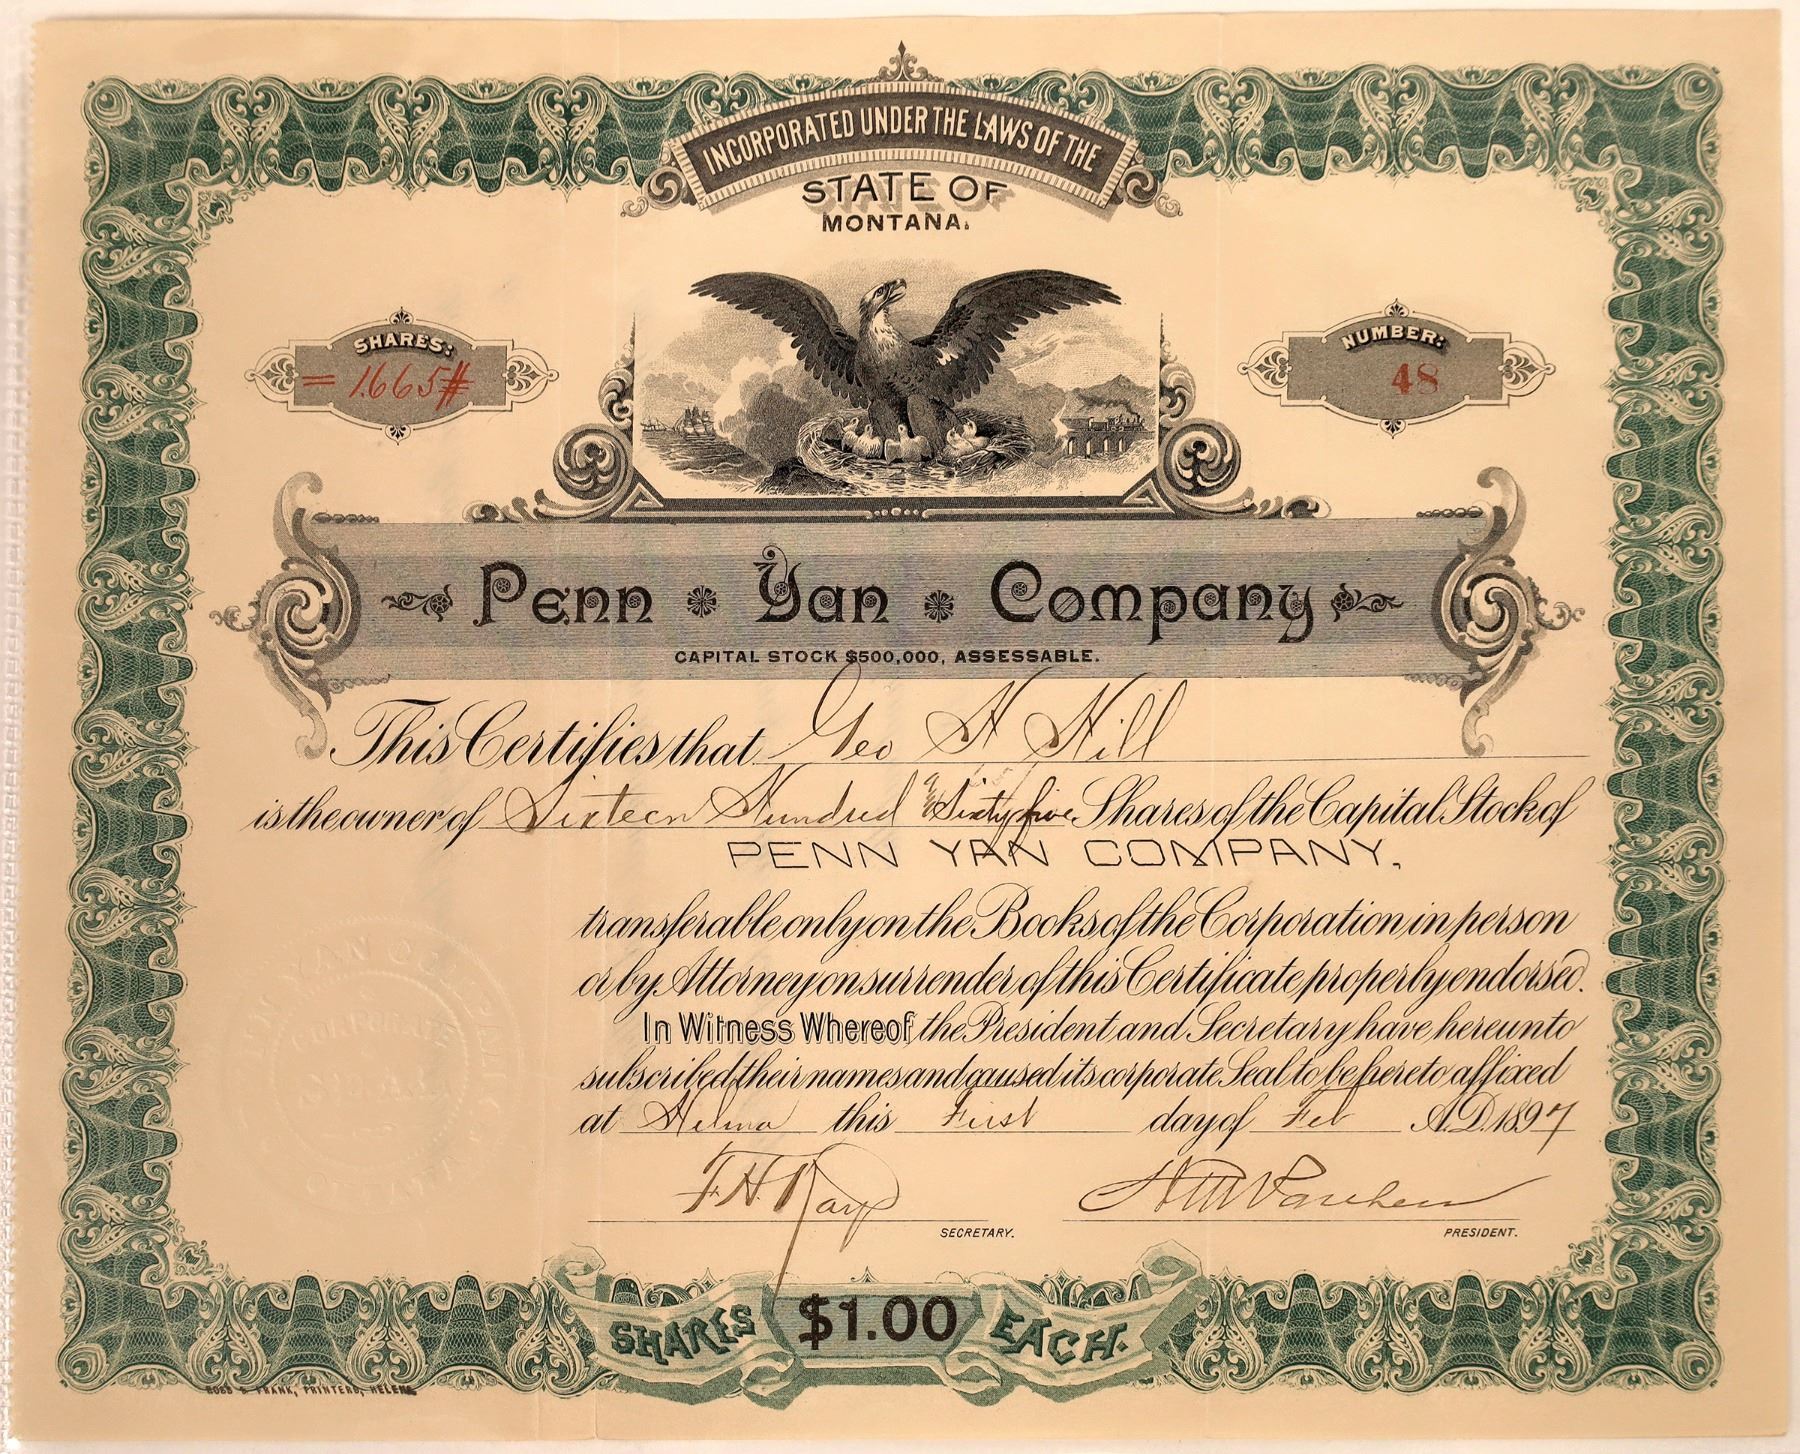 INCORPORATED UNDER THE LAWS OF THE
STATE OF
MONTANA.
SHARES:
= 1665 #
NUMBER:
48
Penn Yan Company
CAPITAL STOCK $500,000, ASSESSABLE.
This Certifies that Geo H Hill
is the owner of Sixteen Hundred & Sixty five Shares of the Capital Stock of
PENN YAN COMPANY,
transferable only on the Books of the Corporation in person
or by Attorney on surrender of this Certificate properly endorsed.
In Witness Whereof, the President and Secretary have hereunto
subscribed their names and caused its corporate Seal to be hereto affixed
at Helena this First day of Feb A.D. 1897
F. H. Ray
SECRETARY.
PRESIDENT.
SHARES $1.00 EACH.
PRINTERS, HELENA